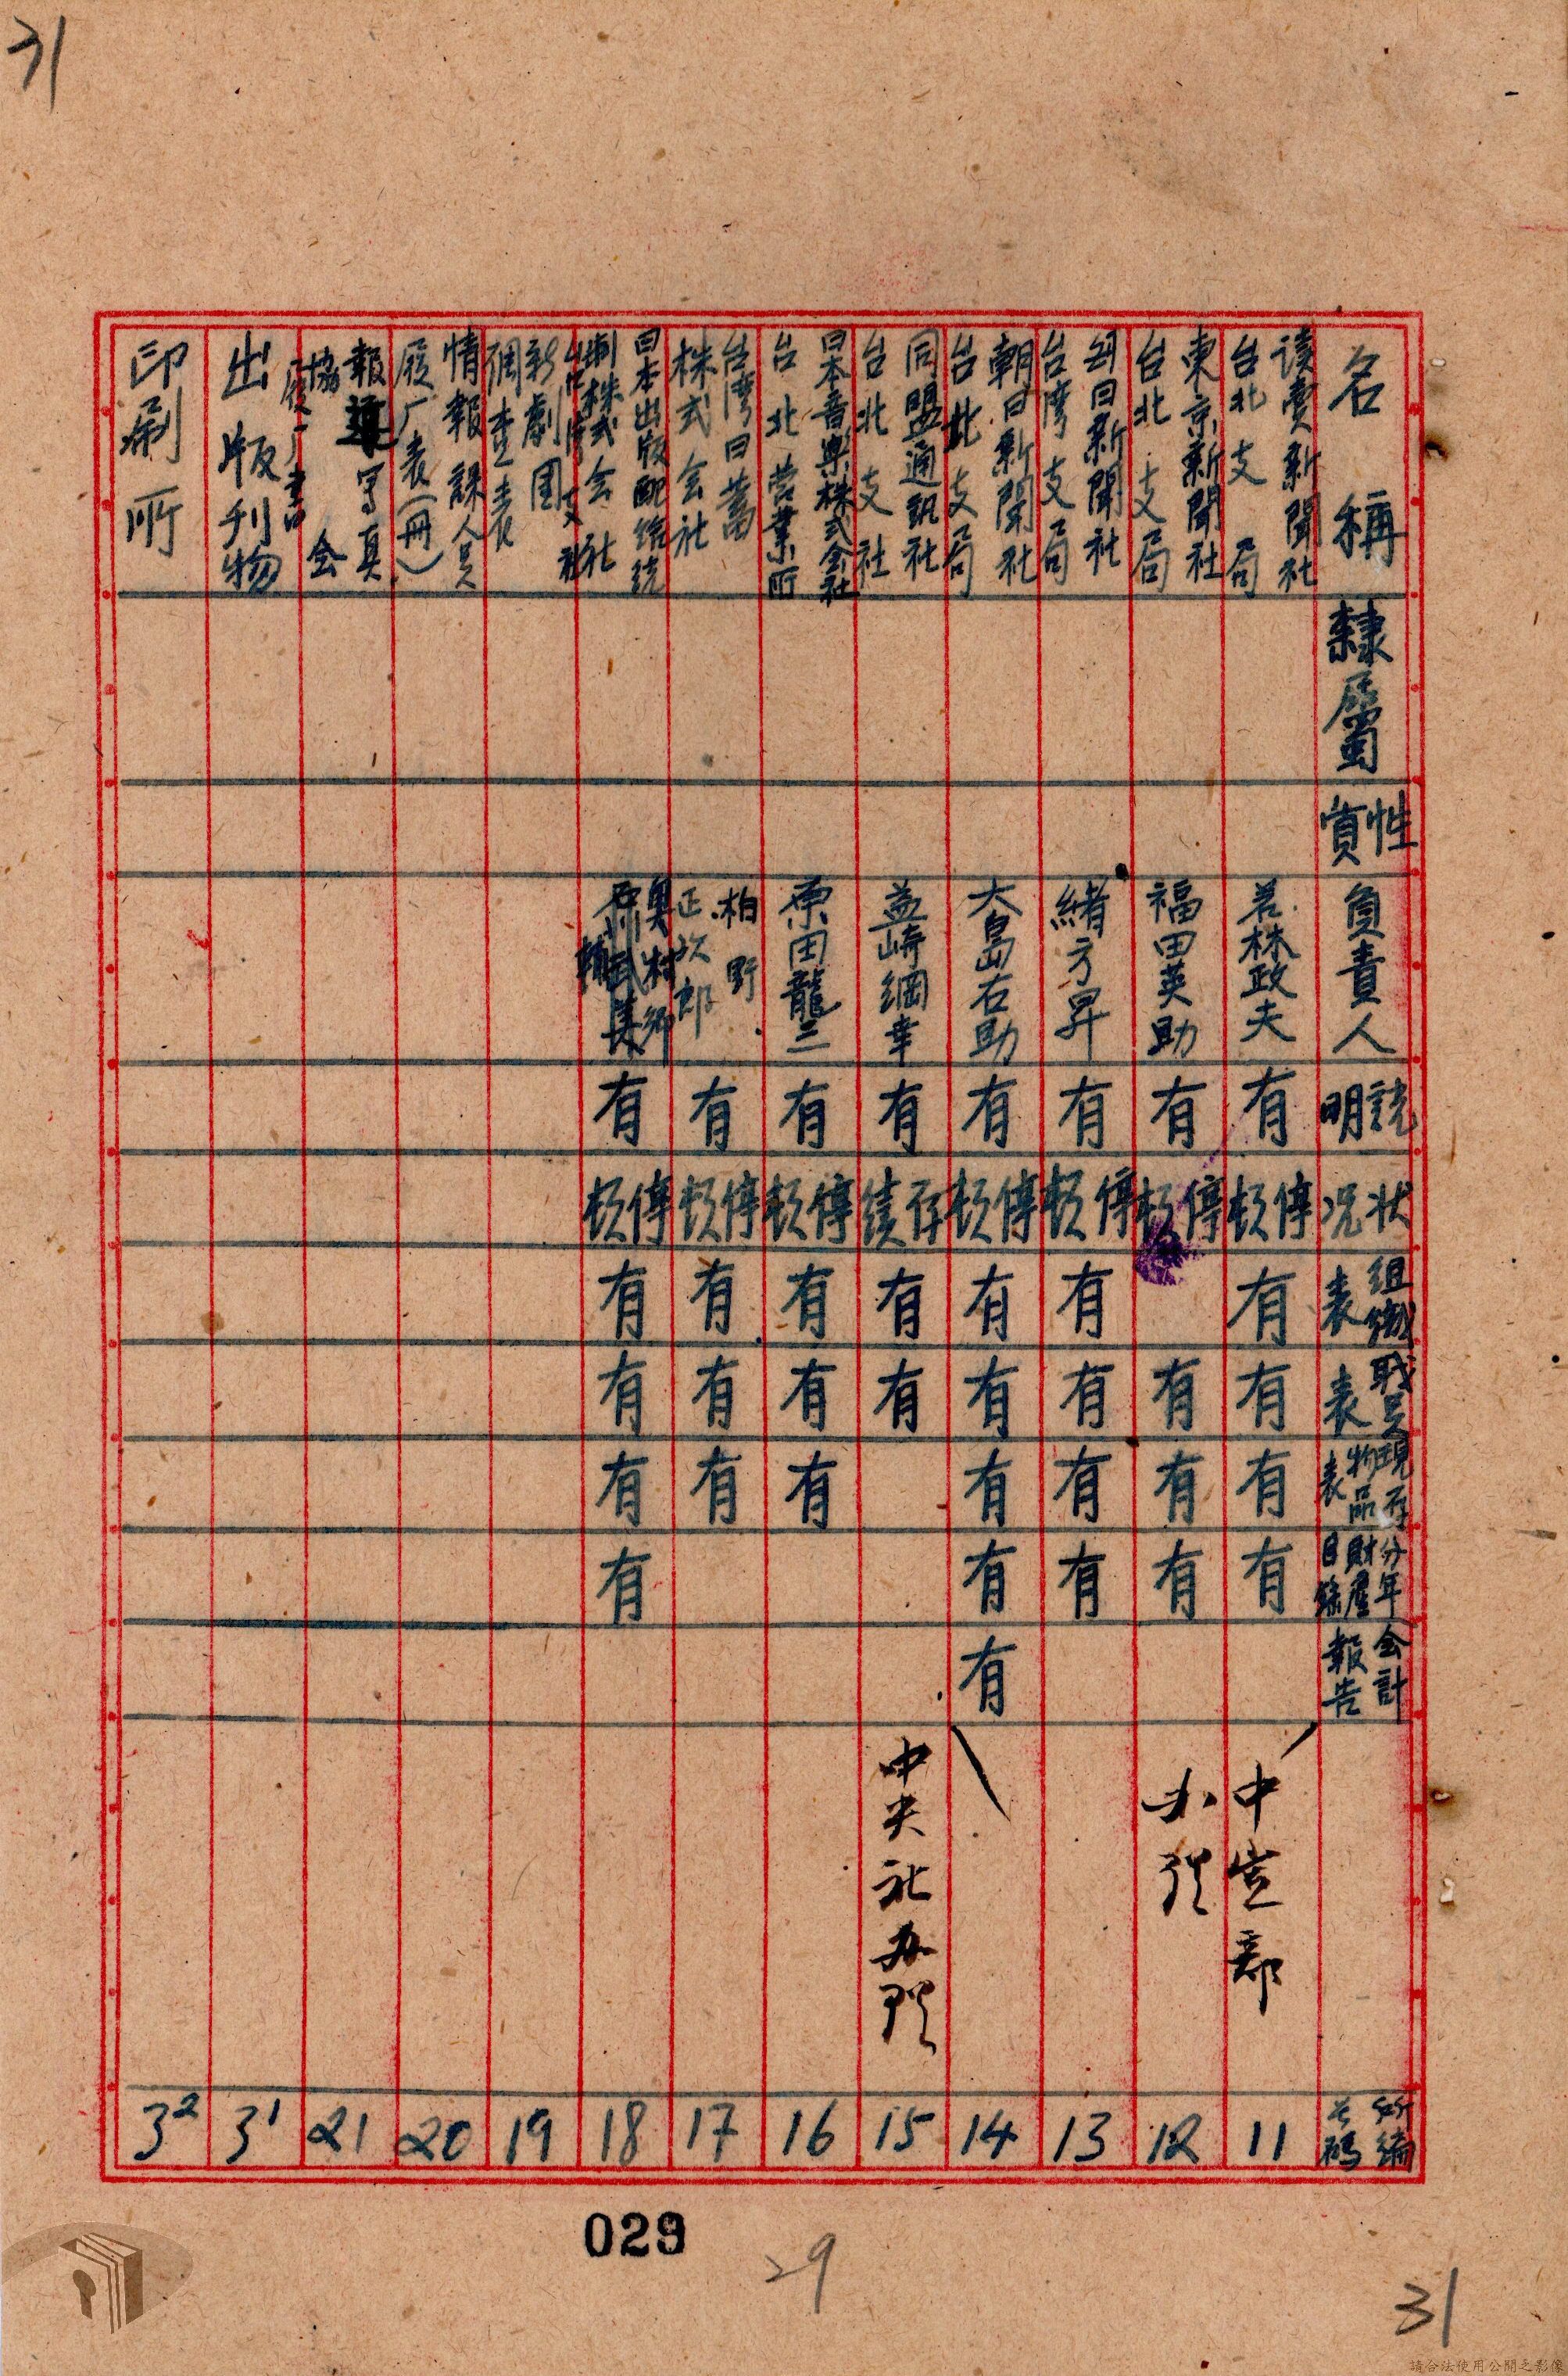 31
名稱
隸屬
性質
負責人
説明
状况
組織表
職員表
現存物品表
分年財產目錄
会計報告
編
号碼
读賣新聞社
台北支局
若林政夫
有
停頓
有
有
有
有
中宣部
11
東京新聞社
台北支局
福田英助
有
停頓
有
有
有
办理
12
毎日新聞社
台湾支局
緒方昇
有
停頓
有
有
有
有
13
朝日新聞社
台北支局
大島右助
有
停頓
有
有
有
有
有
14
同盟通訊社
台北支社
益崎綱幸
有
存續
有
有
中央社办理
15
日本音樂株式会社
台北营業所
原田龍三
有
停頓
有
有
有
16
台湾日蓄
株式会社
柏野
正次郎
有
停頓
有
有
有
17
日本出版配给統
制株式会社
台湾支社
奥村
有
停頓
有
有
有
有
18
新劇団
調查表
19
情報課人員
履厂表(一冊)
20
報道写真
協会
履厂書
21
出版刊物
31
印刷所
32
029
29
31
請合法使用公開之影像